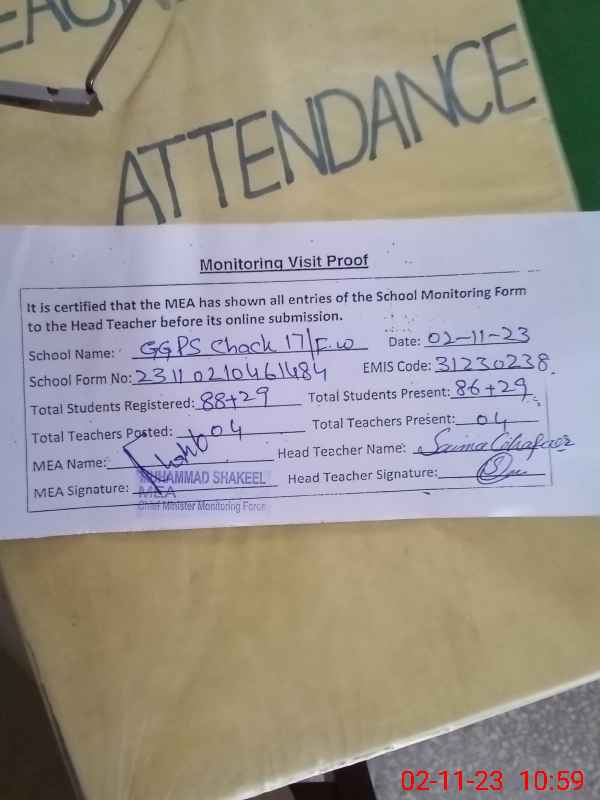 TEAC
ATTENDANCE
Monitoring Visit Proof
It is certified that the MEA has shown all entries of the School Monitoring Form
to the Head Teacher before its online submission.
School Name: GGPS Chack 17/F.W Date: 02-11-23
School Form No: 23110210461484 EMIS Code: 31230238
Total Students Registered: 88+29 Total Students Present: 86+29
Total Teachers Posted: 04 Total Teachers Present: 04
MEA Name: Head Teacher Name: Saima Ghafoor
MEA Signature: Head Teacher Signature:
MUHAMMAD SHAKEEL
MEA
Chief Minister Monitoring Force
02-11-23 10:59